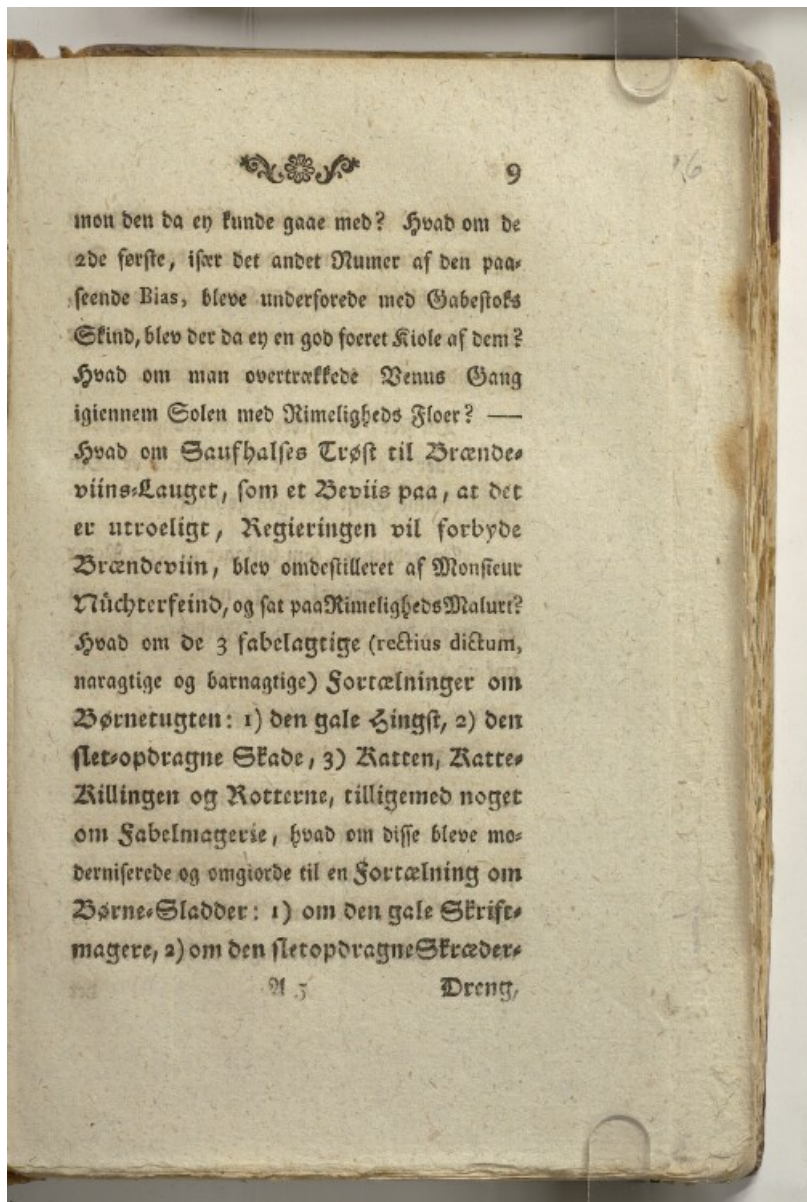 9
mon den da ey kunde gaae med? Hvad om de
2de første, især det andet Numer af den paa-
seende Bias, bleve underforede med Gabestoks
Skind, blev der da ey en god foeret Kiole af dem?
Hvad om man overtrækkede Venus Gang
igiennem Solen med Rimeligheds Floer? —
Hvad om Saufhalses Trøst til Brænde-
viins-Lauget, som et Beviis paa, at det
er utroeligt, Regieringen vil forbyde
Brændeviin, blev omdestilleret af Monsieur
Nüchterfeind, og sat paa Rimeligheds Malurt?
Hvad om de 3 fabelagtige (rectius dictum,
naragtige og barnagtige) Fortælninger om
Børnetugten: 1) den gale Hingst, 2) den
slet-opdragne Skade, 3) Katten, Katte-
Killingen og Rotterne, tilligemed noget
om Fabelmagerie, hvad om disse bleve mo-
derniserede og omgiorde til en Fortælning om
Børne-Sladder: 1) om den gale Skrift-
magere, 2) om den sletopdragne Skræder-
A 3 Dreng,